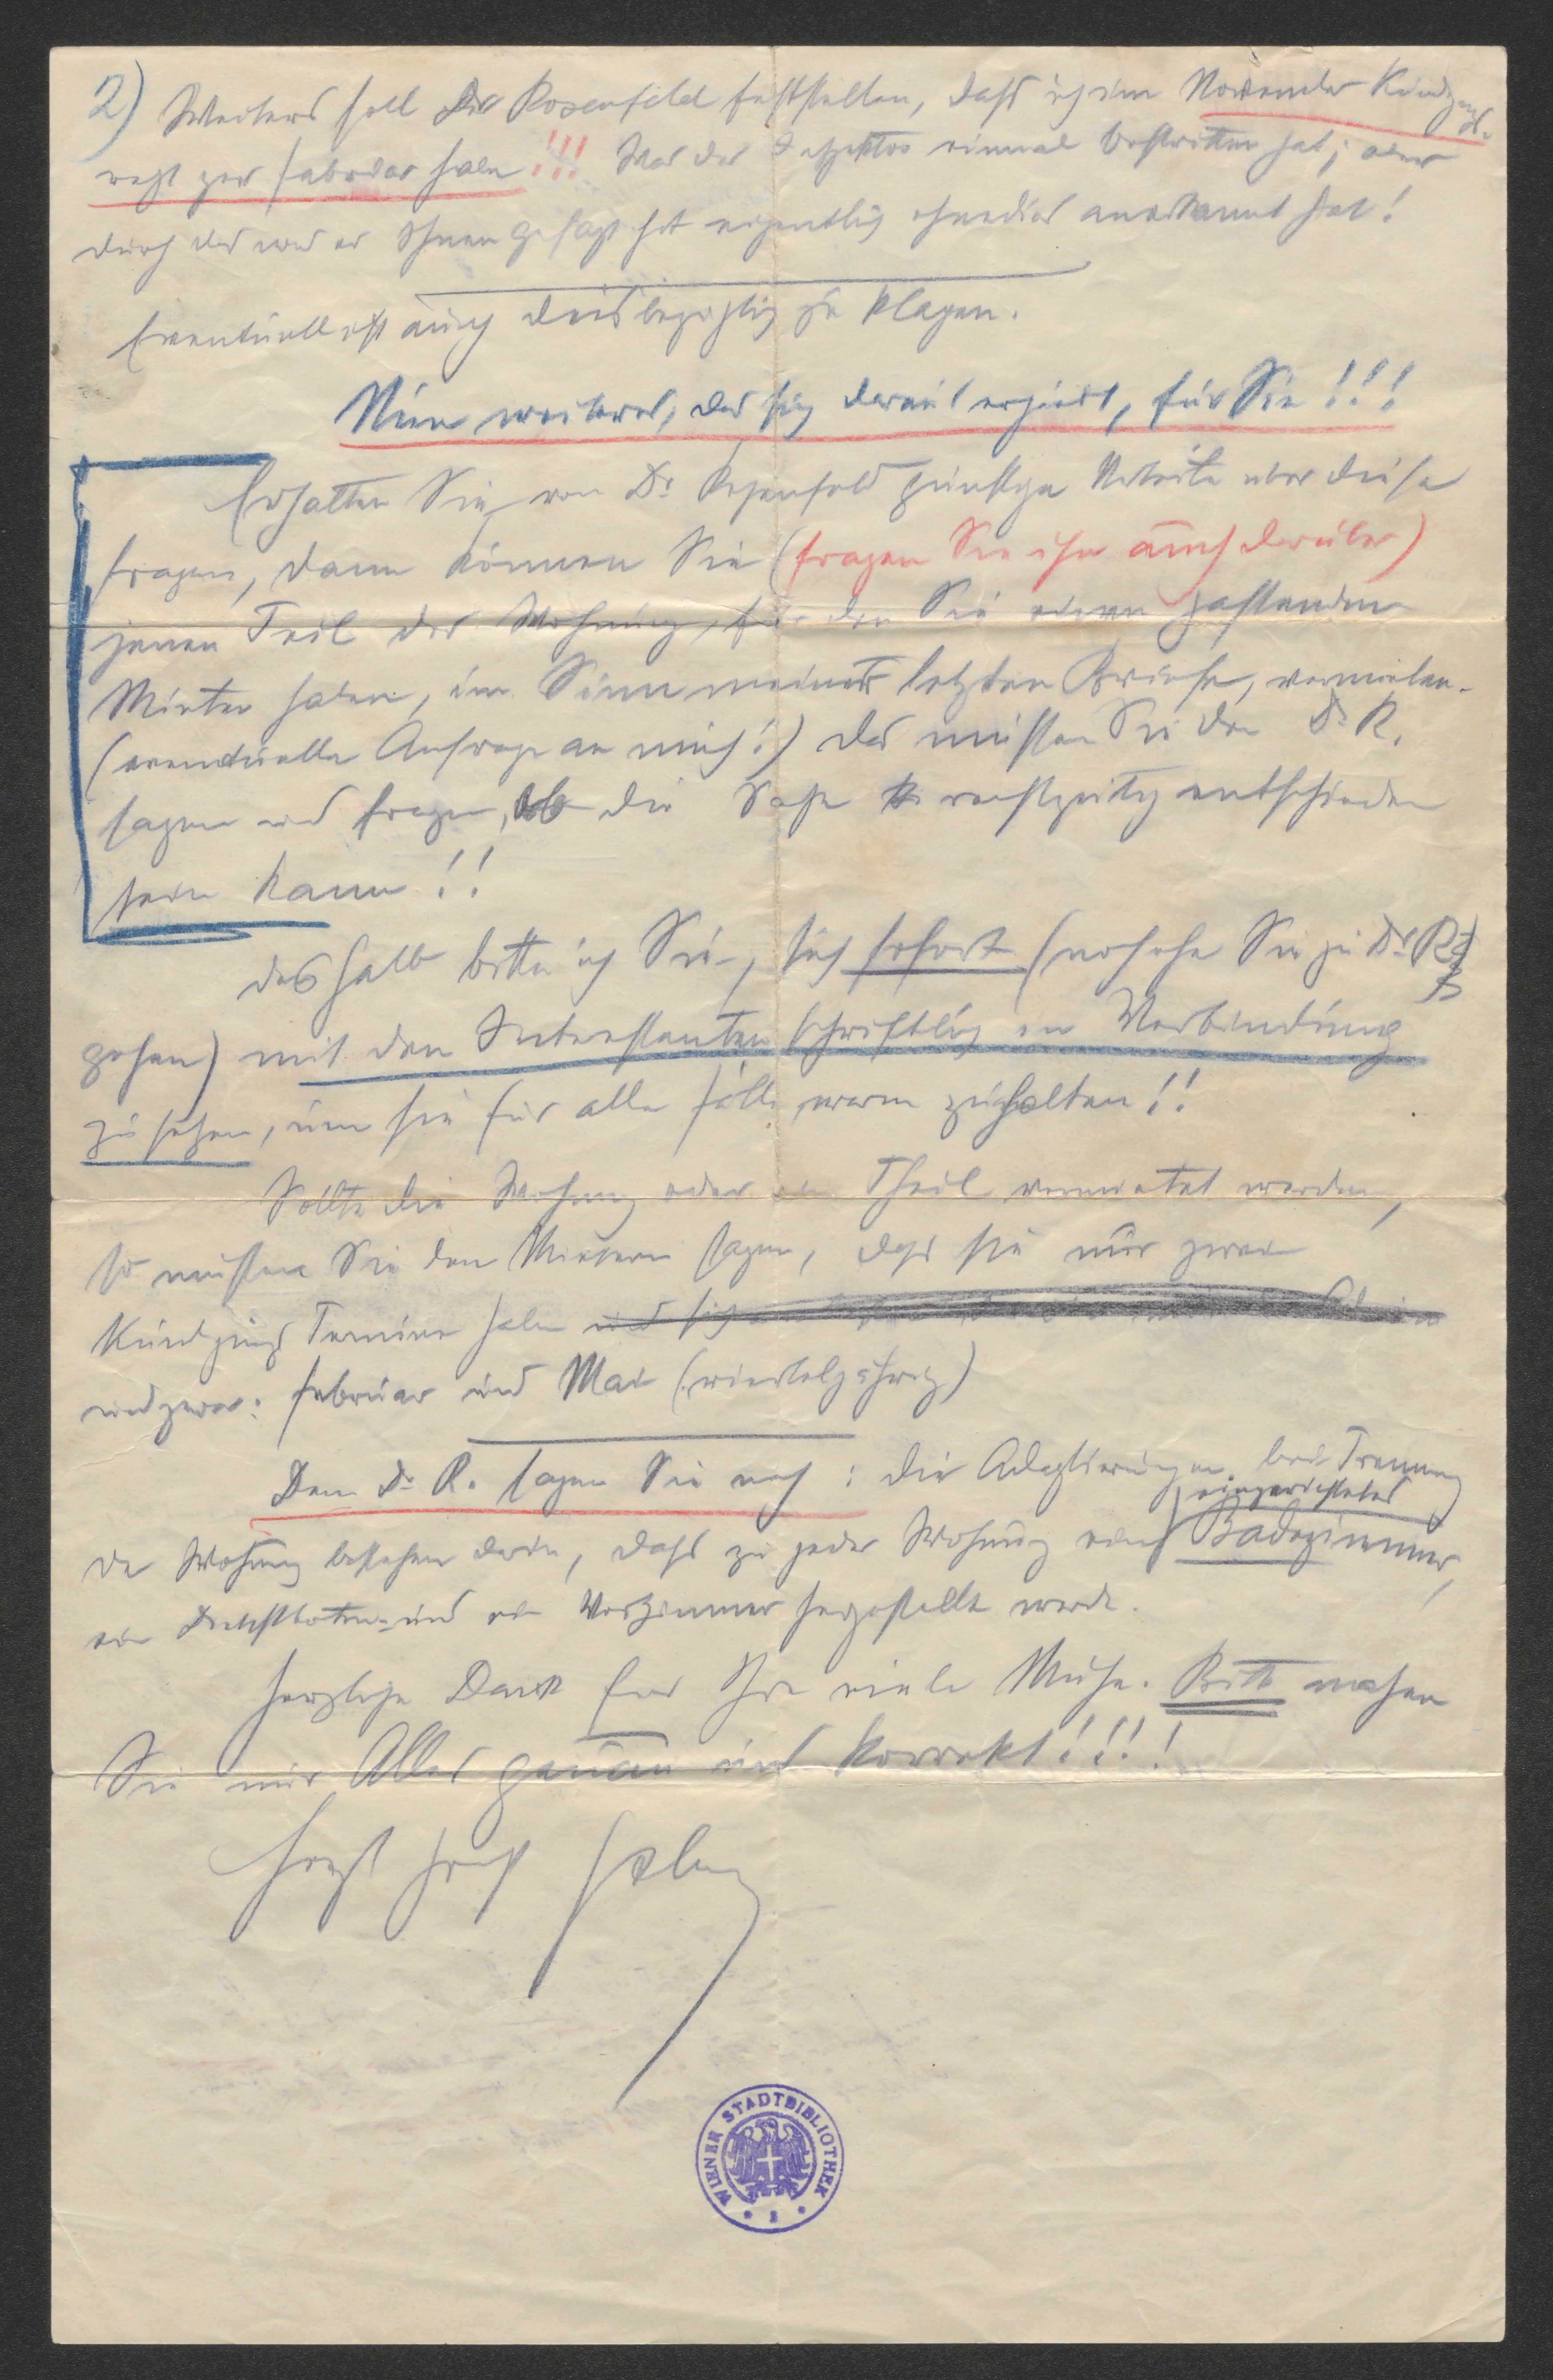 2) Weiters soll Dr Rosenfeld feststellen, dass ich im November Kündigungs-
recht per Februar habe!!! Was der Inspektor einmal bestritten hat; aber
durch das was er Ihnen gesagt hat eigentlich ohnedies anerkannt hat!
Eventuell ist auch diesbezüglich zu klagen.
Nun weiteres, das sich daraus ergiebt, für Sie!!!
Erhalten Sie von Dr Rosenfeld günstige Urteile über diese
Fragen, dann können Sie (fragen Sie ihn auch darüber)
jenen Teil der Wohnung, für den Sie einen passenden
Mieter haben, im Sinn meines letzten Briefes, vermieten.
(eventuelle Anfrage an mich!) Das müssen Sie dem Dr R.
sagen und fragen, ob die Sache rechtzeitig entschieden
sein kann!!
Deshalb bitte ich Sie, sich sofort (noch ehe Sie zu Dr R.
gehen) mit den Interessenten schriftlich in Verbindung
zu setzen, um sie für alle Fälle warm zu halten!!
Sollte die Wohnung oder ein Theil vermietet werden,
so müssen Sie den Mietern sagen, dass sie nur zwei
Kündigungs Termine haben und sich
und zwar: Februar und Mai (vierteljährig)
Dem Dr R. sagen Sie noch: die Adaptierungen bei Trennung
eingerichtetes
der Wohnung bestehen darin, dass zu jeder Wohnung ein Badezimmer,
ein Dienstboten- und ein Vorzimmer hergestellt werde.
Herzlichen Dank für Ihre viele Mühe. Bitte machen
Sie mir Alles genau und korrekt!!!!
WIENER STADTBIBLIOTHEK